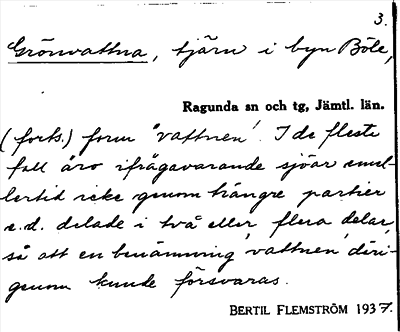 3.
Grönvattna, tjärn i byn Böle,
Ragunda sn och tg, Jämtl. län.
(forts.) form "vattnen". I de flesta
fall äro ifrågavarande sjöar emel-
lertid icke genom trängre partier
e.d. delade i två eller flera delar,
så att en benämning 'vattnen' däri-
genom kunde försvaras.
BERTIL FLEMSTRÖM 1937.